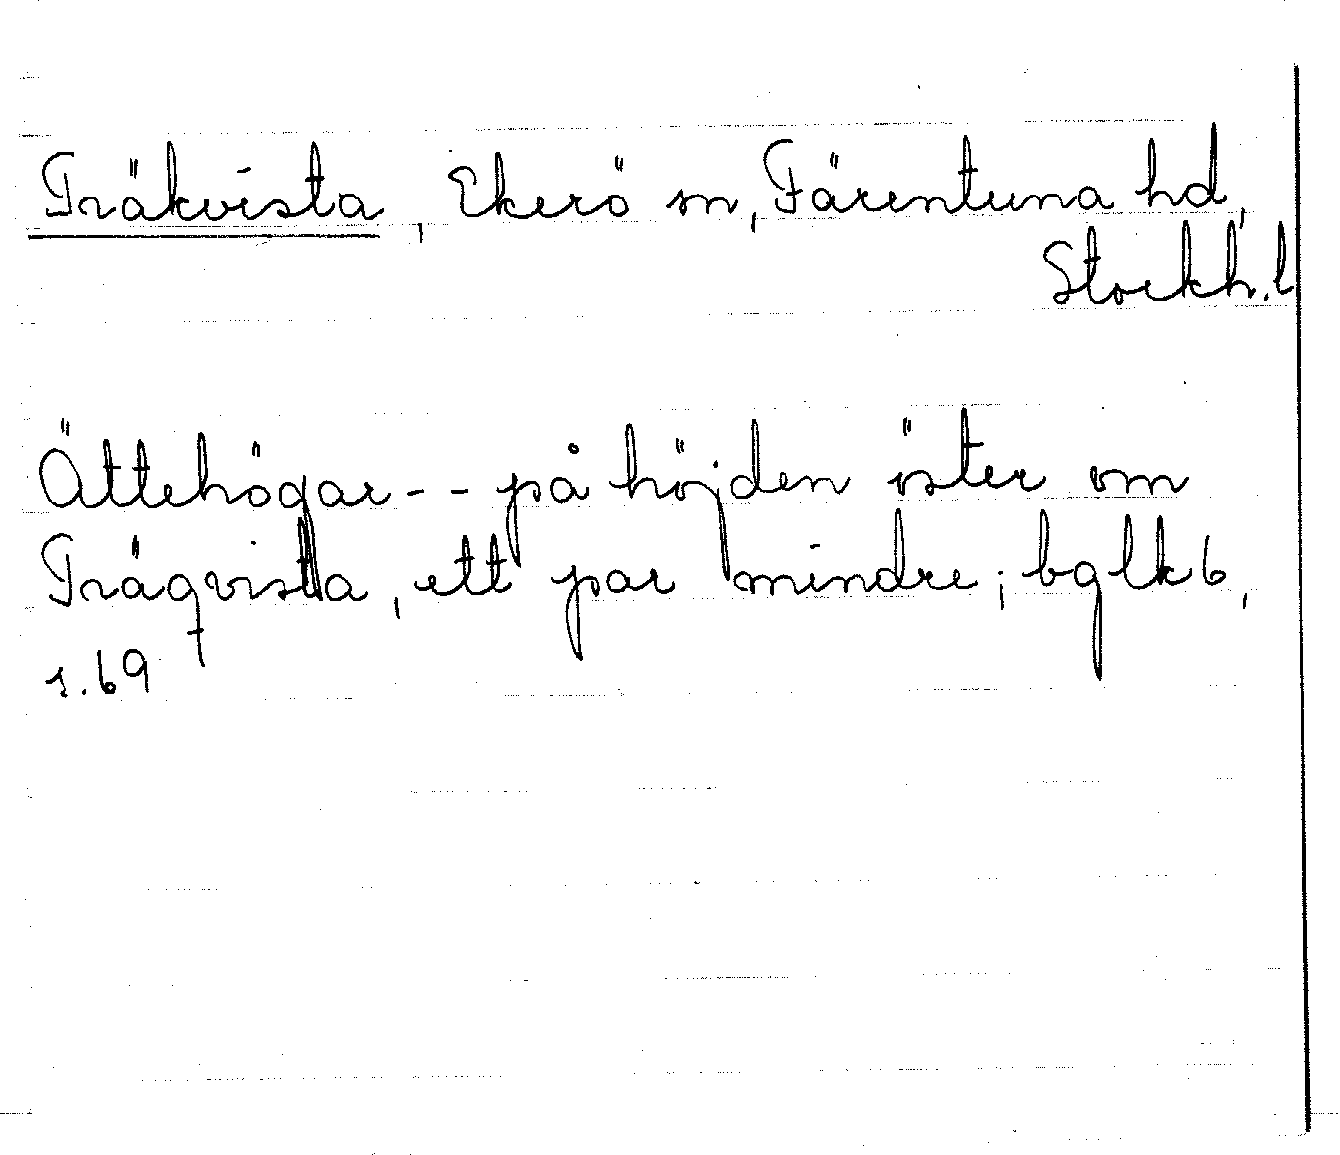 Träkvista, Ekerö sn, Färentuna hd,
Stockh. l
Ättehögar -- på höjden öster om
Träqvista, ett par mindre; bglk 6,
s. 69